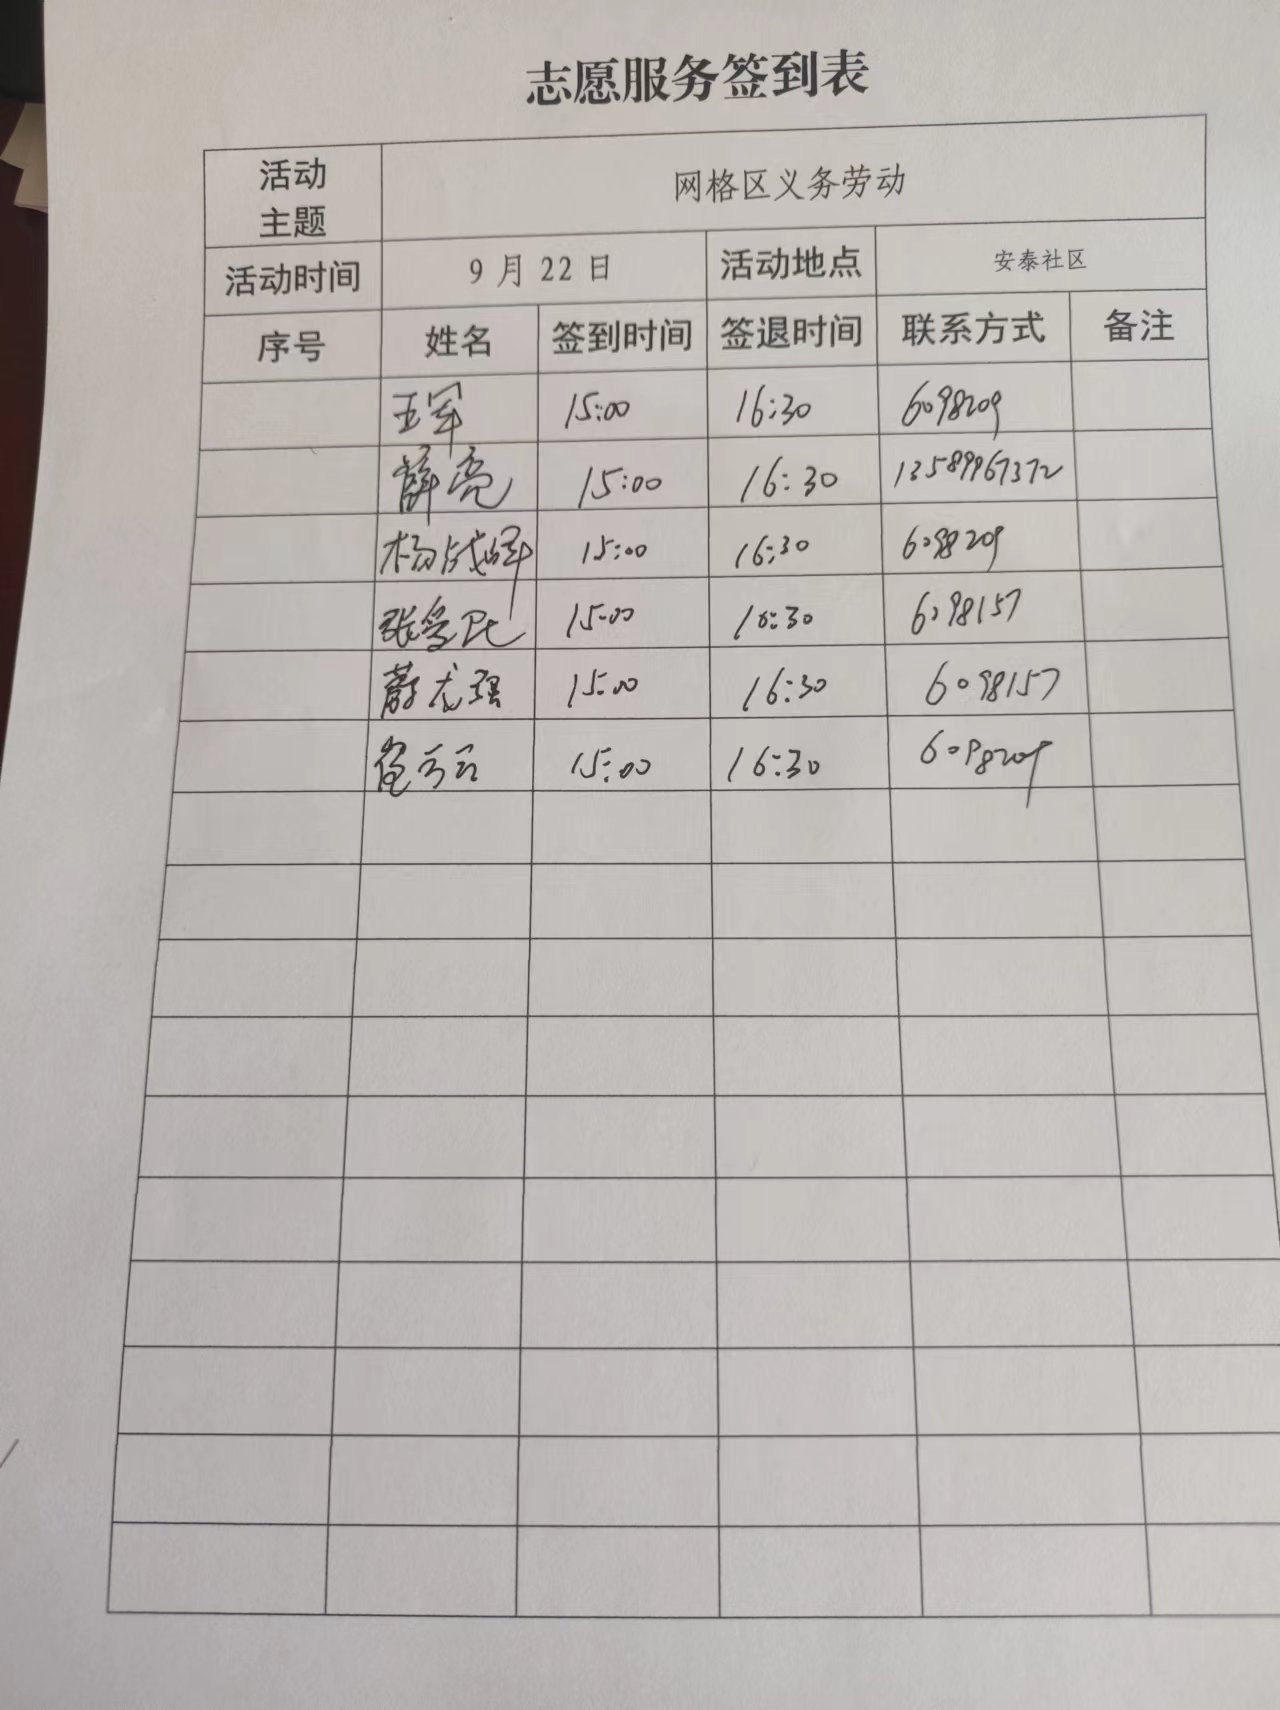 志愿服务签到表
活动主题 网格区义务劳动
活动时间 9月22日 活动地点 安泰社区
序号 姓名 签到时间 签退时间 联系方式 备注
王军 15:00 16:30 6098209
薛亮 15:00 16:30 13589967372
杨战军 15:00 16:30 6098209
张 15:00 16:30 6098157
蔚龙强 15:00 16:30 6098157
15:00 16:30 6098209